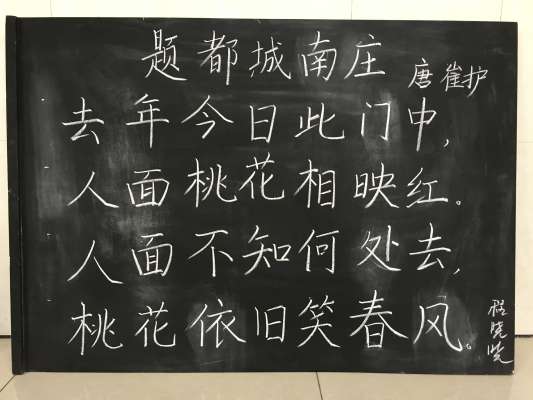 题都城南庄
唐 崔护
去年今日此门中,
人面桃花相映红。
人面不知何处去,
桃花依旧笑春风。